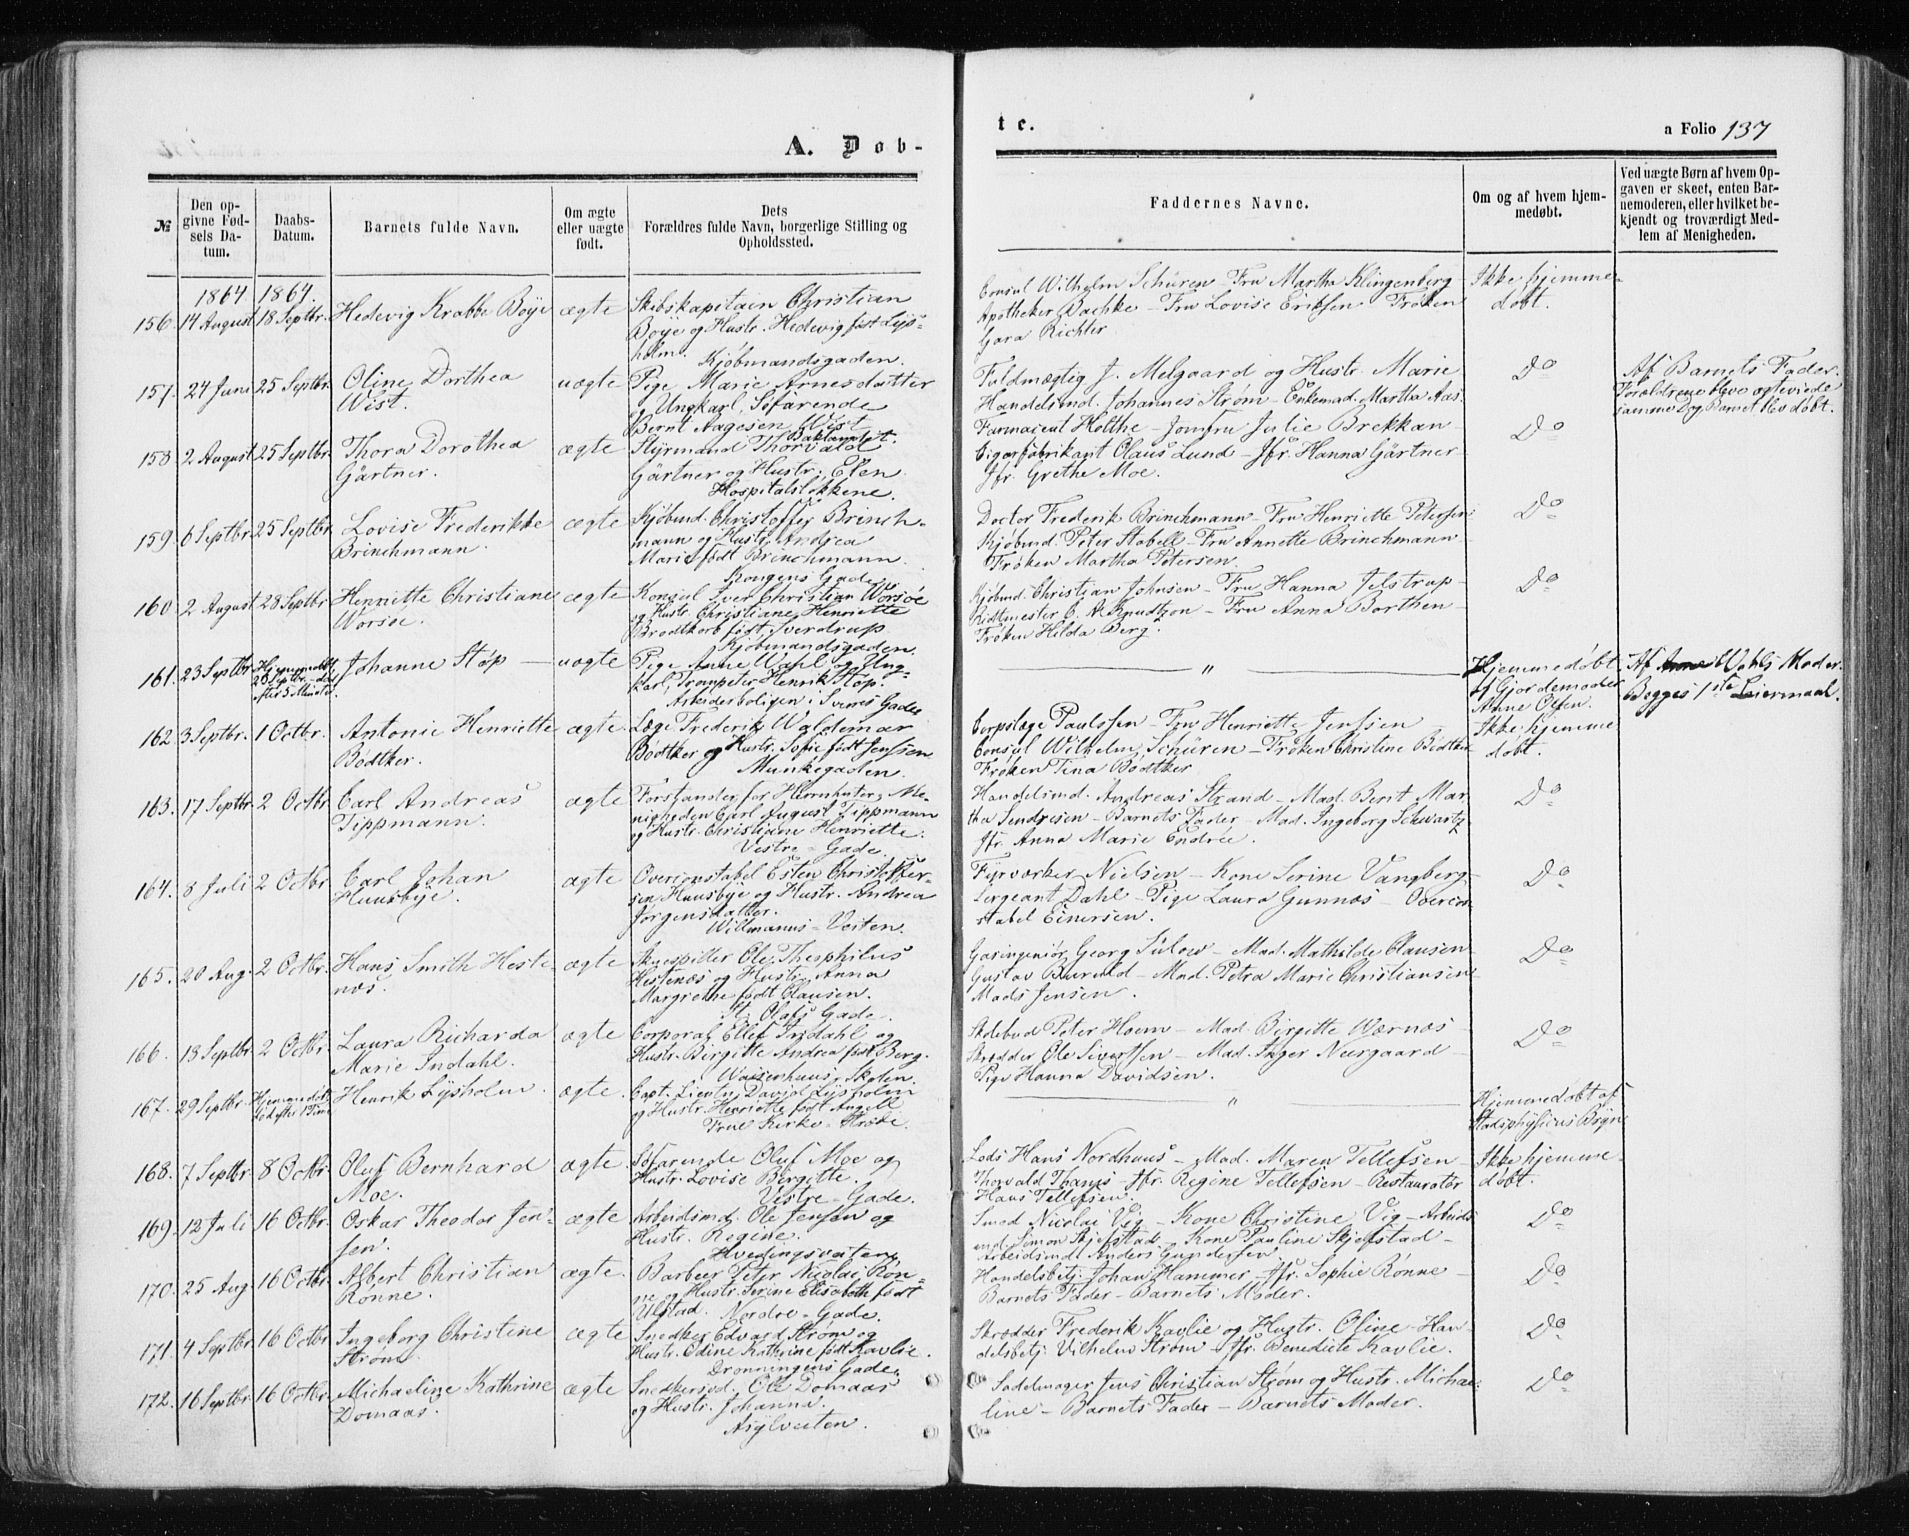 A. Døb-
№
Den op-
givne Fød-
sels Da-
tum.
Daabs-
Datum.
Barnets fulde Navn.
Om ægte
eller uægte
født.
Dets
Forældres fulde Navn, borgerlige Stilling og
Opholdssted.
1864 1864.
156. 14 August 18 Septbr. Hedevig Krabbe Boye ægte Skibskapitain Christian
Boye og Hustr. Hedevig født Lys-
holm. Kjøbmandsgaden.
157. 24 Juni 25 Septbr. Oline Dorthea uægte Pige Marie Arnesdatter
Wist. og Ungkarl, Søfarende
Bernt Aagesen Wist
Baklandet.
158 2 August 25 Septbr. Thora Dorothea ægte Styrmand Thorvald
Gärtner. Gärtner og Hustr. Elen
Hospitalsløkkene.
159. 6 Septbr. 25 Septbr. Lovise Frederikke ægte Kjøbmd. Christoffer Brinch-
Brinchmann. mann og Hustr. Andrea
Marie født Brinchmann.
Kongens Gade.
160 2 August 28 Septbr. Henriette Christiane ægte Konsul Iver Christian Worsøe
Worsøe. og Hustr. Christiane Henriette
Brodtkorb født Sverdrup
Kjøbmandsgaden.
161. 23 Septbr. Hjemmedøbt Johanne Støp — uægte Pige Anne Wahl og Ung-
23 Septbr. – død karl, Trompeter Henrik Støp.
efter 5 Minuter. Arbeidsboligen i Sverris Gade
162 3 Septbr. 1 Octbr. Antonie Henriette ægte. Læge Frederik Waldemar
Bødtker. Bødtker og Hustr. Sofie født Jenssen
Munkegaden.
163. 17 Septbr. 2 Octbr. Carl Andreas ægte Forstander for Herrnhuter Me-
Tippmann. nigheden Carl August Tippmann
og Hustr. Christiane Henriette.
Vestre-Gade.
164. 8 Juli 2 Octbr. Carl Johan ægte Overconstabel Esten Christoffer-
Huusbye. sen Huusbye og Hustr. Andrea
Jørgensdatter.
Willmanns-Veiten.
165. 20 Aug. 2 Octbr. Hans Smith Heste- ægte Skuespiller Ole Theophilus
næs. Hestenæs og Hustr. Anna
Margrethe født Clausen.
St. Olafs Gade.
166. 13 Septbr. 2 Octbr. Laura Richarda ægte Corporal Ellef Indahl og
Marie Indahl. Hustr. Birgitte Andrea født Berg.
Waisenhuus Skolen.
167. 29 Septbr. Hjemmedøbt Henrik Lysholm. ægte. Capt. Lieutn. David Lysholm
død efter 1 Time og Hustr. Henriette født Angell
Frue Kirke-Stræde.
168. 7 Septbr 8 Octbr Oluf Bernhard ægte. Søfarende Oluf Moe og
Moe. Hustr. Lovise Birgitte.
Vestre-Gade.
169. 12 Juli 16 Octbr. Oskar Theodor Jen- ægte Arbeidsmd. Ole Jensen og
sen. Hustr. Regine.
Hvedingsveiten
170. 25 Aug. 16 Octbr. Albert Christian ægte. Barbeer Peter Nicolai Røn-
Rønne. ne og Hustr. Serine Elisabeth født
Ulstad. Nordre-Gade.
171. 4 Septbr. 16 Octbr. Ingeborg Christine ægte Snedker Edvard Strøm og
Strøm. Hustr. Edine Kathrine født Kavlie.
Dronningens Gade.
172. 16 Septbr. 16 Octbr. Michaeline Kathrine ægte Snedkersvd. Ole Domaas
Domaas. og Hustr. Johanna.
Asylveiten.
te.
a Folio 137
Faddernes Navne.
Om og af hvem hjem-
medøbt.
Ved uægte Børn af hvem Op-
gaven er skeet, enten Bar-
nemoderen, eller hvilket be-
kjendt og troværdigt Med-
lem af Menigheden.
Consul Wilhelm Schüren – Fru Martha Klingenberg Ikke hjemme-
Apotheker Dachke – Fru Lovise Eriksen – Frøken døbt.
Gara Richter
Fuldmægtig J. Melgaard og Hustr. Marie Do Af Barnets Fader.
Handelsmd. Johannes Strøm – Enkemad. Martha Aas. Forældrene bleve ægteviede
samme Dag Barnet blev døbt.
Farmaceut Holthe – Jomfru Julie Brekkan – Do
Cigarfabrikant Olaus Lund – Jfr. Hanna Gärtner –
Jfr. Grethe Moe.
Doctor Frederik Brinchmann – Fru Henriette Petersen Do
Kjøbmd. Peter Stabell – Fru Annette Brinchmann –
Frøken Martha Petersen.
Kjøbmd. Christian Johnsen – Fru Hanna Jelstrup – Do
Ridtmester C. A. Knudtzon – Fru Anna Borthen –
Frøken Hilda Berg.
— " — Hjemmedøbt Af Wahls Moder.
af Gjordemoder Begges 1ste Leiermaal.
Anne Olsen.
Corpslæge Paulssen – Fru Henriette Jenssen Ikke hjemme
Consul Wilhelm Schüren – Frøken Christine Bødtker døbt.
Frøken Tina Bødtker
Handelsmd. Andreas Strand – Mad. Berit Mar- Do
tha Sendresen – Barnets Fader – Mad. Ingeborg Schwartz
Jfr. Anna Marie Endrée.
Fyrværker Nielsen – Kone Serine Vangberg – Do
Sergeant Dahl – Pige Laura Gunnæs – Overcon-
stabel Einersen.
Gasingeniør Georg Sülow – Mad. Mathilde Clausen – Do
Gustav – Mad. Petra Marie Christiansen
Mads Jensen.
Peter Haem – Mad. Birgitte Wærnæs – Do
Skrædder Ole Sivertsen – Mad. Inger Neergaard –
Pige Hanna Davidsen.
— " — Hjemmedøbt af
Stadsphysicus Bryn
Lods Hans Nordhuus – Mad. Maren Tellefsen – Ikke hjemme-
Thorvald Thams – Jfr. Regine Tellefsen – Restauratør døbt.
Hans Tellefsen.
Smed Nicolai Vig – Kone Christine Vig – Arbeids- Do
md. Simon Skjefstad – Kone Pauline Skjefstad –
Arbeidsmd. Anders Gundersen
Handelsbetj. Johan Hammer – Jfr. Sophie Rønne – Do
Barnets Fader – Barnets Moder.
Skrædder Frederik Kavlie og Hustr. Oline – Han- Do
delsbetj. Vilhelm Strøm – Jfr. Benedicte Kavlie.
Sadelmager Jens Christian Strøm og Hustr. Michae- Do
line – Barnets Fader – Barnets Moder.